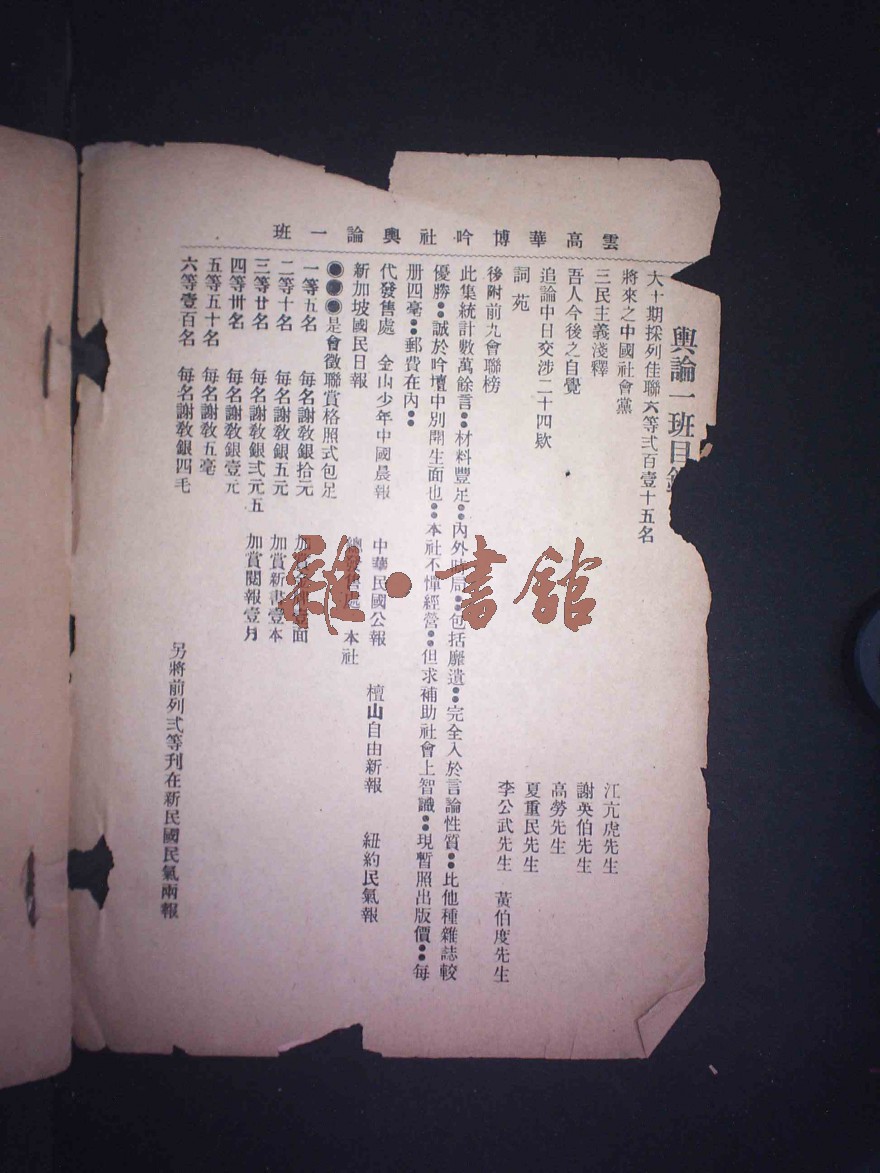 雲高華博吟社輿論一班
輿論一班目
大十期採列佳聯六等弍百壹十五名
將來之中國社會黨 江亢虎先生
三民主義淺釋 謝英伯先生
吾人今後之自覺 高勞先生
追論中日交涉二十四欵 夏重民先生
詞苑 李公武先生 黃伯度先生
後附前九會聯榜
此集統計數萬餘言●●材料豐足●●內外時局●●包括靡遺●●完全入於言論性質●●比他種雜誌較
優勝●●誠於吟壇中別開生面也●●本社不憚經營●●但求補助社會上智識●●現暫照出版價●●每
册四毫●●郵費在內●●
代發售處 金山少年中國晨報 中華民國公報 檀山自由新報 紐約民氣報
新加坡國民日報 總發售處 本社
●●●是會徵聯賞格照式包足
一等五名 每名謝教銀拾元 加賞 面
二等十名 每名謝教銀五元 加賞新書壹本
三等廿名 每名謝教銀弍元五 加賞閱報壹月
四等卅名 每名謝教銀壹元
五等五十名 每名謝教五毫
六等壹百名 每名謝教銀四毛
另將前列弍等刊在新民國民氣兩報
雜·書館